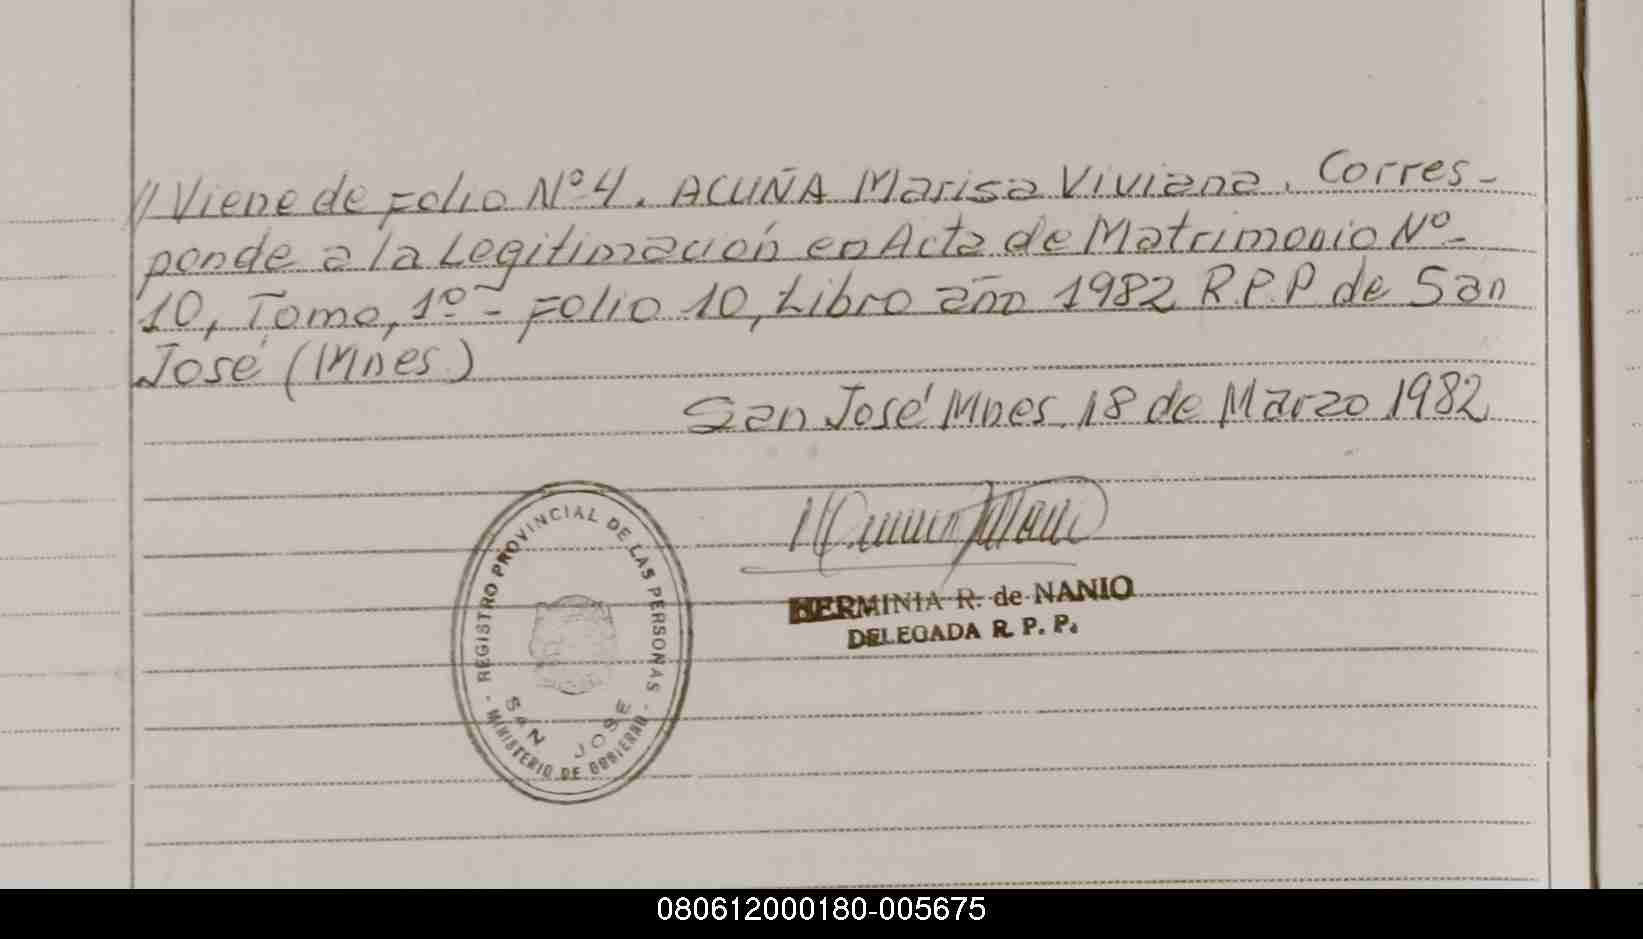 //Viene de Folio Nº4. ACUÑA Marisa Viviana. Corres-
ponde a la Legitimación en Acta de Matrimonio Nº-
10, Tomo, 1º- Folio 10, Libro año 1982 R.P.P de San
José (Mnes)
San José Mnes. 18 de Marzo 1982
REGISTRO PROVINCIAL DE LAS PERSONAS
SAN JOSE
- MINISTERIO DE GOBIERNO -
HERMINIA R. de NANIO
DELEGADA R. P. P.
080612000180-005675